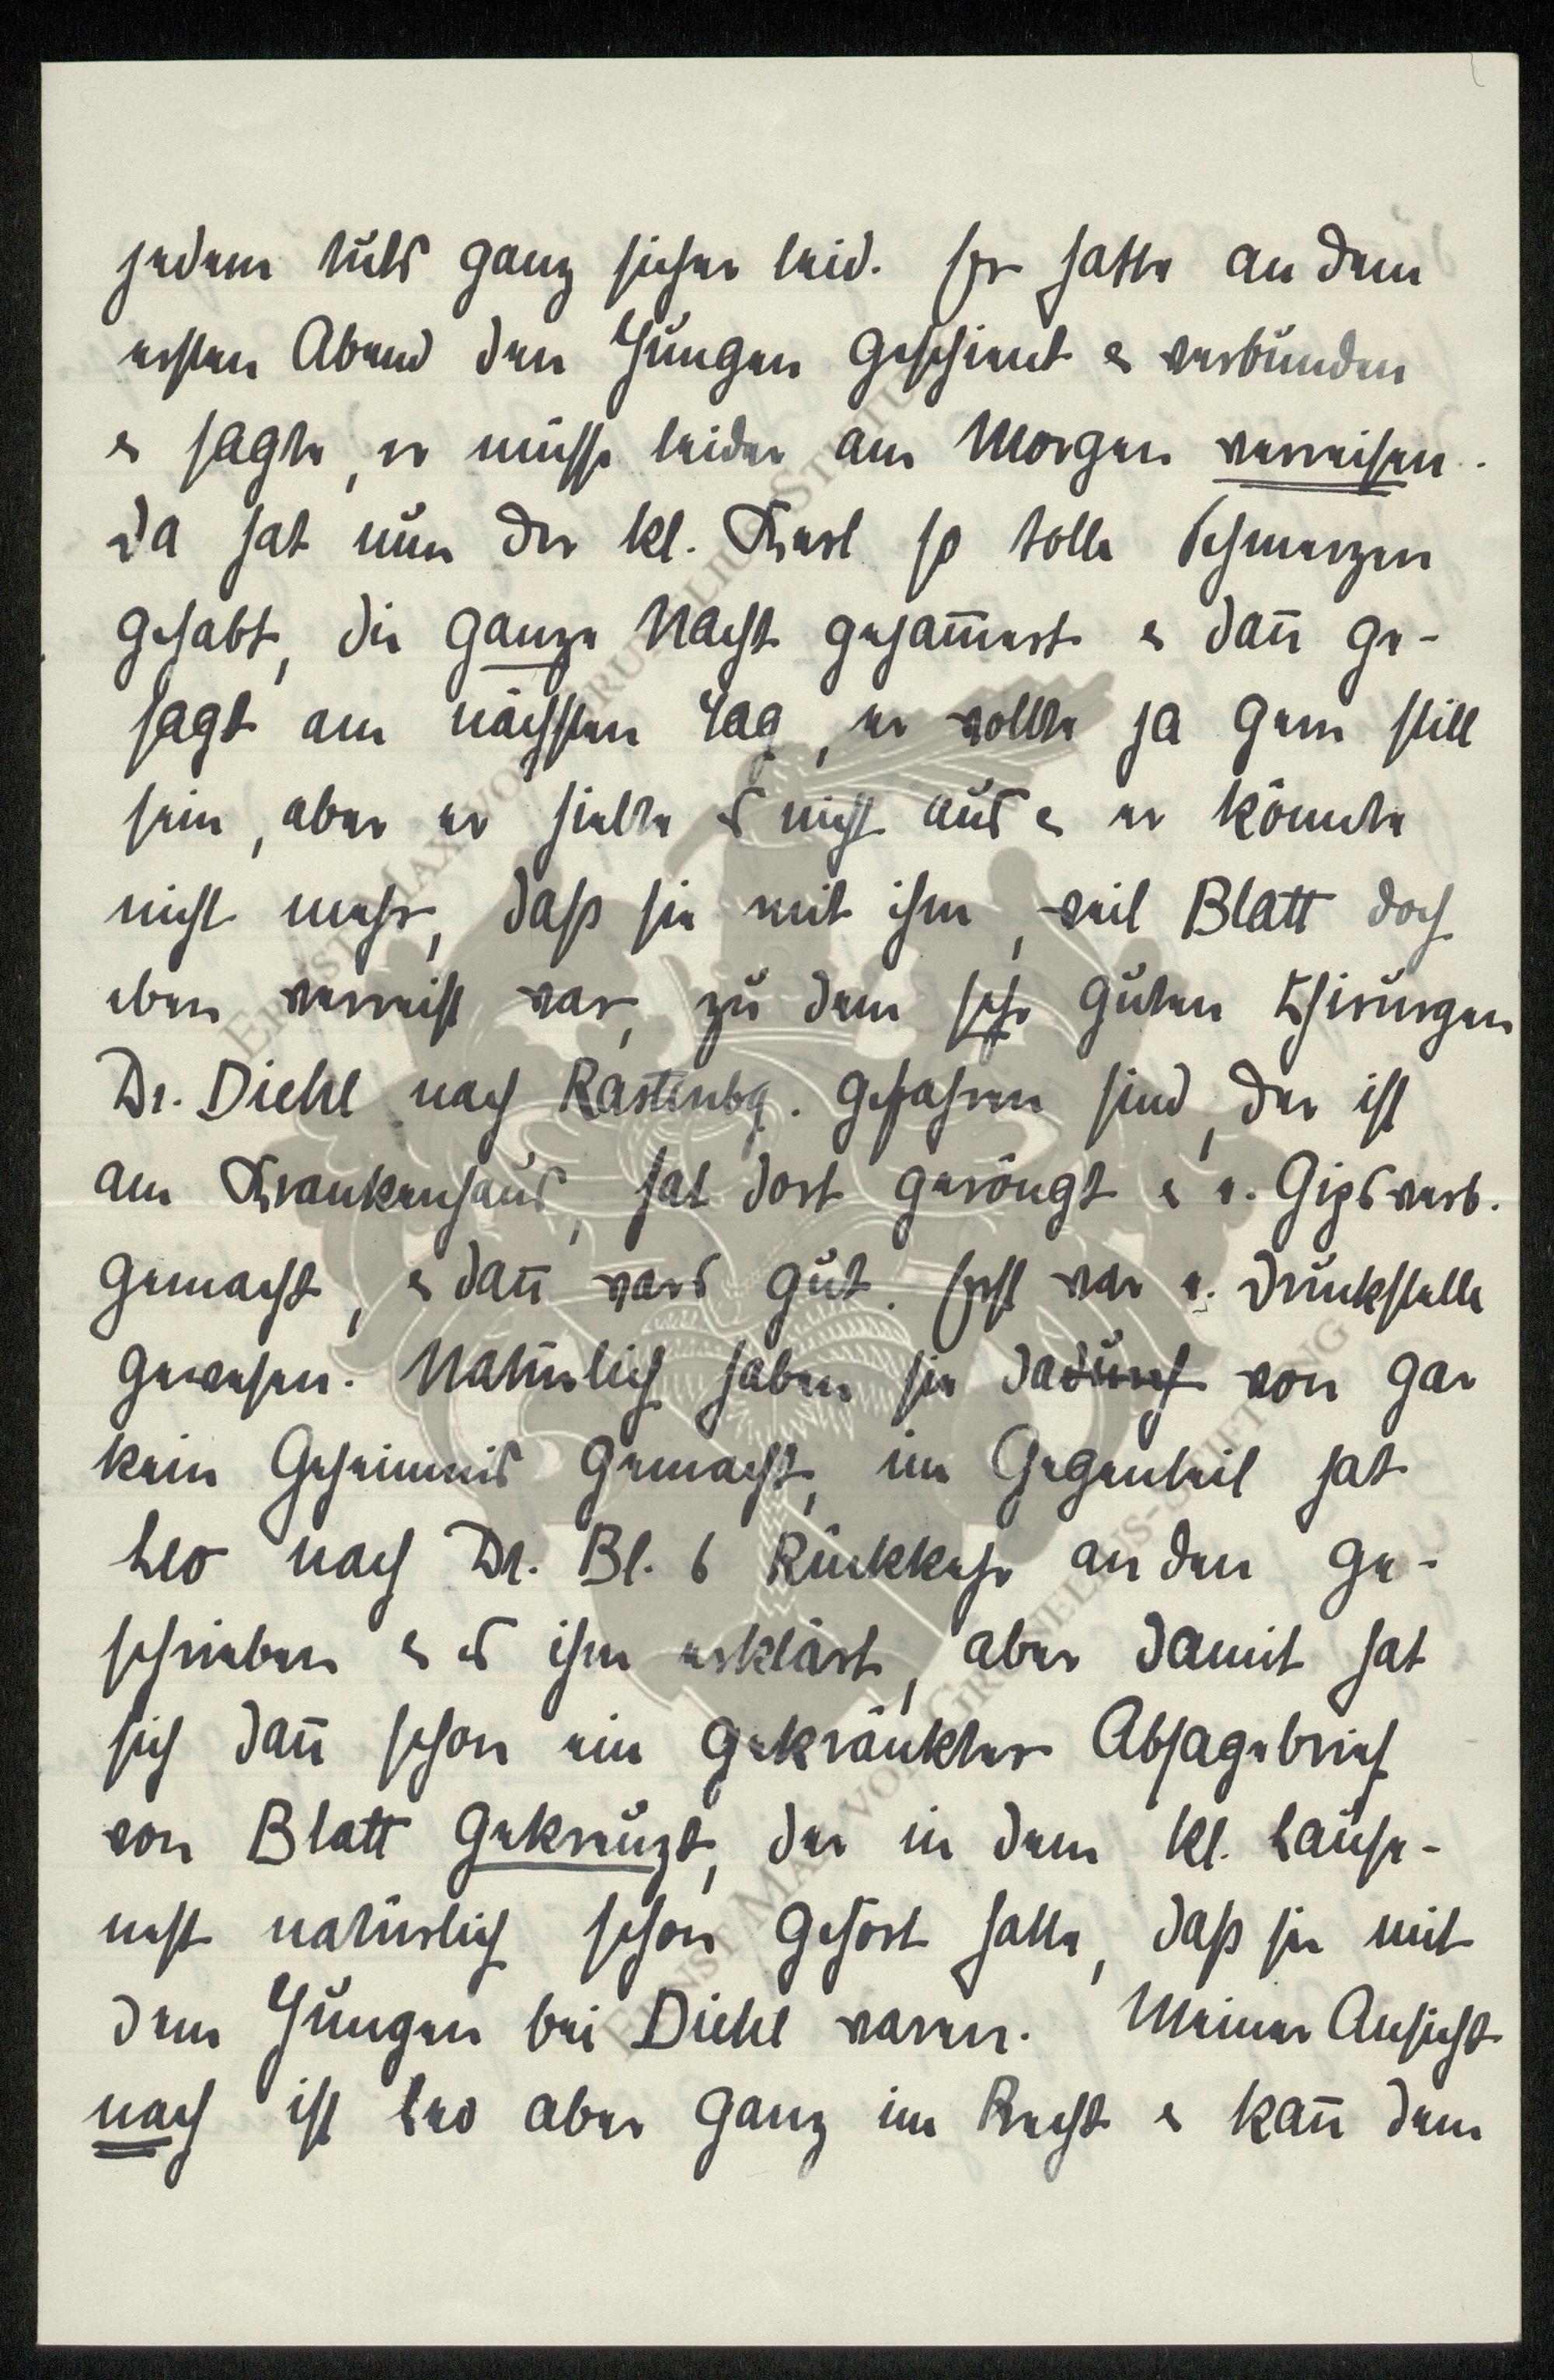 jedem tuts ganz sicher leid. Er hatte an dem
ersten Abend den Jungen geschient & verbunden
& sagte, er müsse leider am Morgen verreisen.
Da hat nun der kl. Karl so tolle Schmerzen
gehabt, die ganze Nacht gejam̅ert & dan̅ ge-
sagt am nächsten Tag, er wollte ja gern still
sein, aber er hielte es nicht aus & er könnte
nicht mehr, daß sie mit ihm, weil Blatt doch
eben verreist war, zu dem sehr guten Chirurgen
Dr. Diehl nach Rastenbg. gefahren sind, der ist
am Krankenhaus, hat dort geröngt & e. Gipsverb.
gemacht, & dan̅ wars gut. Erst war e. Druckstelle
gewesen. Natürlich haben sie dadurch von gar
kein Geheimnis gemacht, im Gegenteil hat
Leo nach Dr. Bl. s Rückkehr an den ge-
schrieben & es ihm erklärt, aber damit hat
sich dan̅ schon ein gekränkter Absagebrief
von Blatt gekreuzt, der in dem kl. Lause-
nest natürlich schon gehört hatte, daß sie mit
dem Jungen bei Diehl waren. Meiner Ansicht
nach ist Leo aber ganz im Recht & kan̅ dem
ERNST MAX VON GRUNELIUS-STIFTUNG
ERNST MAX VON GRUNELIUS-STIFTUNG